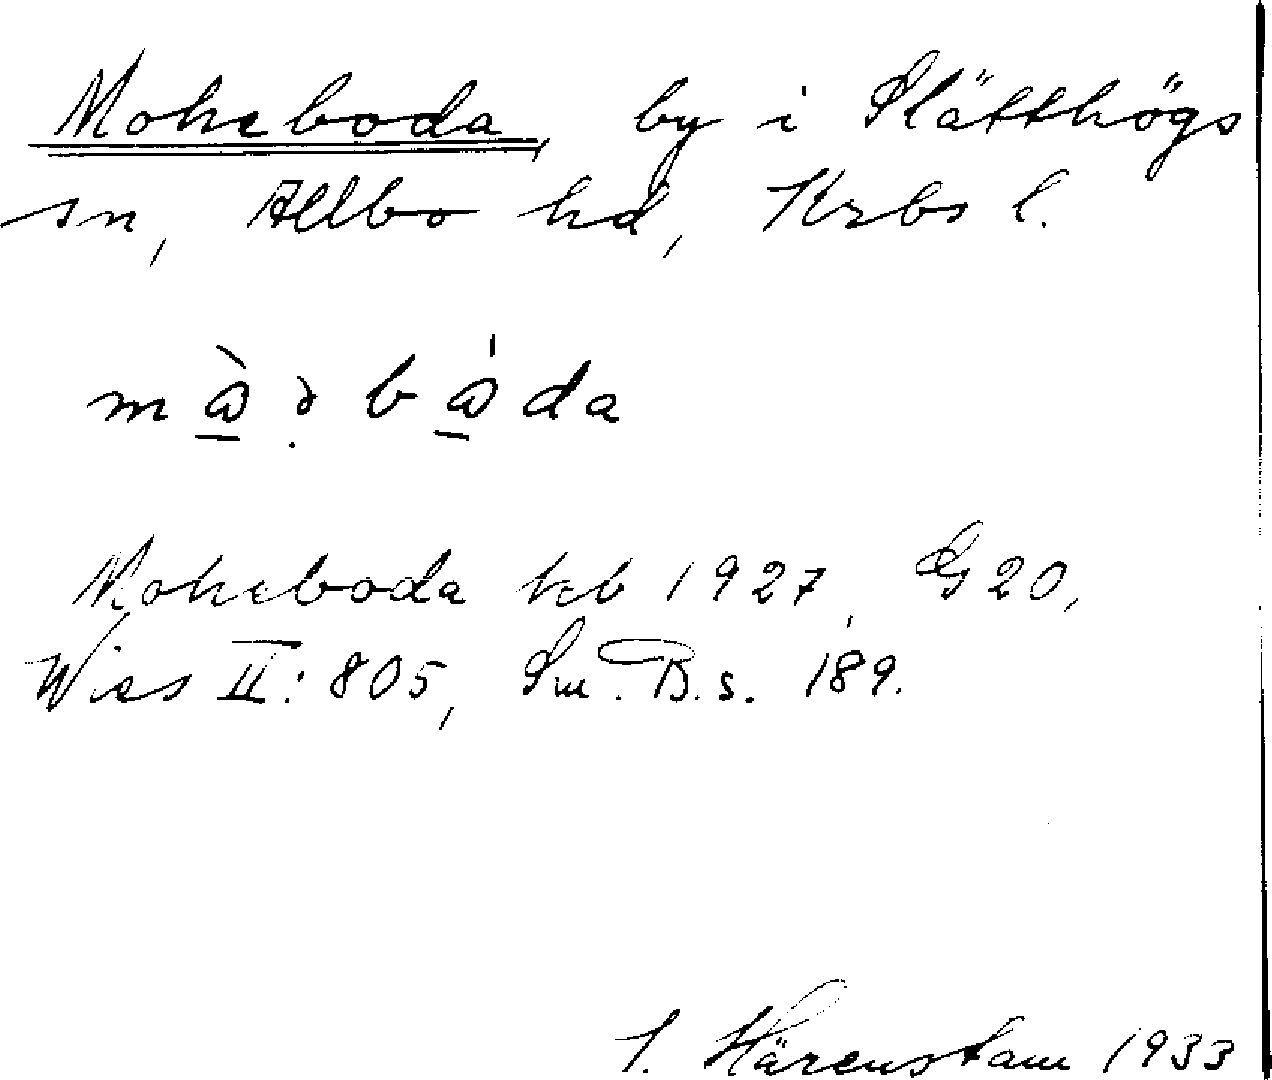 Moheboda, by i Slätthögs
sn, Allbo hd, Krbs l.
mὼ̠ə̣bώ̠da
Moheboda keb 1927, G 20,
Wiss II: 805, Sm. B. s. 189.
I. Härenstam 1933